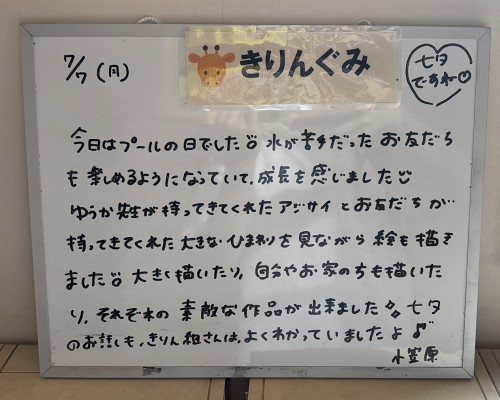 7/7(月)
きりんぐみ
七夕
ですね
今日はプールの日でした 水が苦手だった お友だち
も 楽しめるようになっていて、成長を感じました
ゆうか先生が持ってきてくれた アジサイ と お友だち が
持ってきてくれた 大きな ひまわり を 見ながら 絵も 描き
ました 大きく描いたり、自分や お家のちも描いた
り、それぞれの 素敵な作品が 出来ました 七夕
のお話しも、きりん組さんは、よくわかっていましたよ♪
小笠原